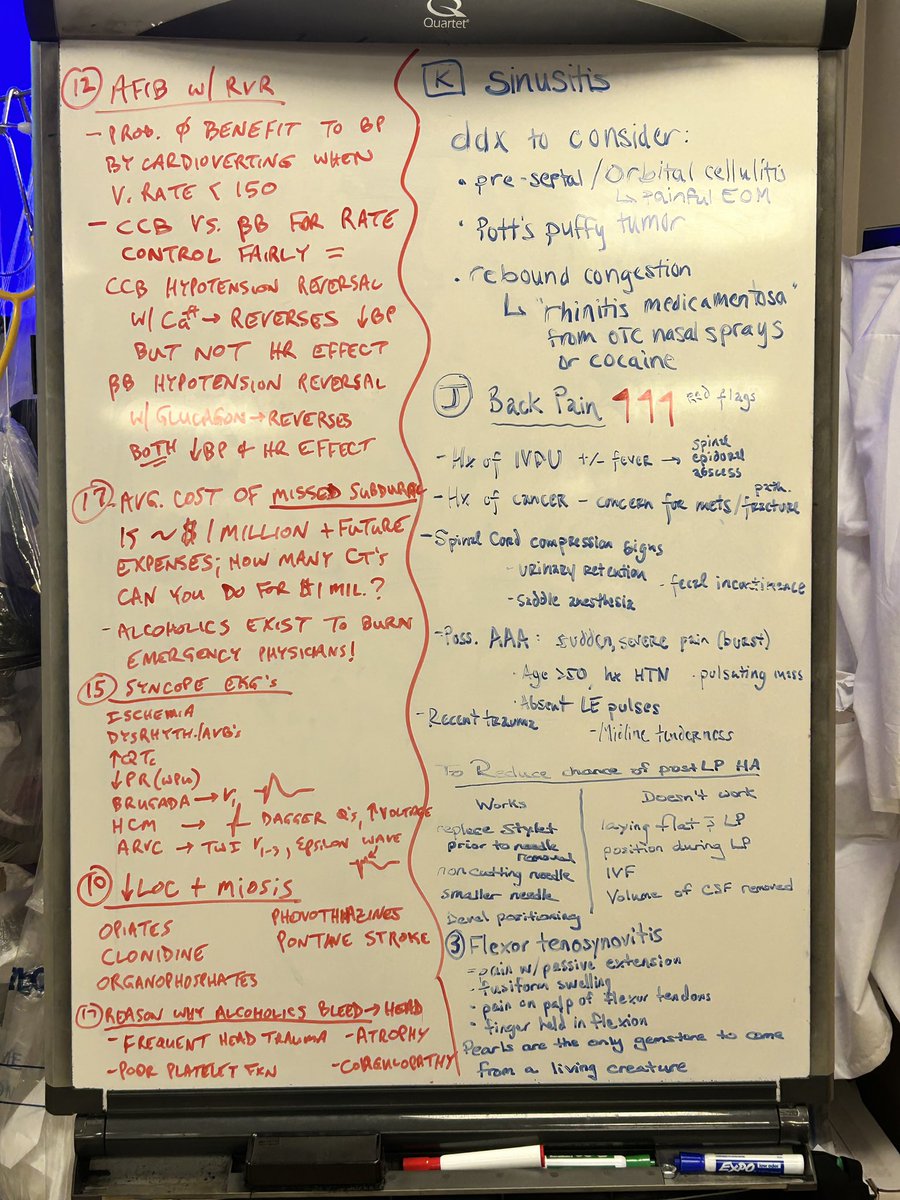 Quartet
⑫ AFIB W/ RVR
- PROB. Ø BENEFIT TO BP
BY CARDIOVERTING WHEN
V. RATE < 150
- CCB VS. BB FOR RATE
CONTROL FAIRLY =
CCB HYPOTENSION REVERSAL
W/ Ca⁺⁺ → REVERSES ↓BP
BUT NOT HR EFFECT
βB HYPOTENSION REVERSAL
W/ GLUCAGON → REVERSES
BOTH ↓BP & HR EFFECT
⑰ - AVG. COST OF MISSED SUBDURAL
IS ~ $1 MILLION + FUTURE
EXPENSES; HOW MANY CT'S
CAN YOU DO FOR $1 MIL.?
- ALCOHOLICS EXIST TO BURN
EMERGENCY PHYSICIANS!
⑮ SYNCOPE EKG'S
ISCHEMIA
DYSRHYTH./AVB'S
↑QTc
↓PR (WPW)
BRUGADA → V1
HCM → DAGGER Q'S, ↑VOLTAGE
ARVC → TWI V1-3, EPSILON WAVE
⑩ ↓LOC + MIOSIS
OPIATES
CLONIDINE
ORGANOPHOSPHATES
PHENOTHIAZINES
PONTINE STROKE
⑰ REASON WHY ALCOHOLICS BLEED → HEAD
- FREQUENT HEAD TRAUMA - ATROPHY
- POOR PLATELET FXN - COAGULOPATHY
K Sinusitis
ddx to consider:
• pre-septal / Orbital cellulitis
↳ painful EOM
• Pott's puffy tumor
• rebound congestion
↳ "rhinitis medicamentosa"
from OTC nasal sprays
or cocaine
J Back Pain red flags
- Hx of IVDU +/- fever → spinal epidural abscess
- Hx of cancer - concern for mets/path. fracture
- Spinal Cord compression signs
- urinary retention - fecal incontinence
- Saddle anesthesia
- Poss. AAA: sudden, severe pain (burst)
• Age >50, hx HTN • pulsating mass
• Absent LE pulses
- Recent trauma - Midline tenderness
To Reduce chance of post LP HA
Works
replace Stylet
prior to needle
removal
non cutting needle
smaller needle
Bevel positioning
Doesn't work
laying flat p̄ LP
position during LP
IVF
Volume of CSF removed
③ Flexor tenosynovitis
- pain w/ passive extension
• fusiform swelling
• pain on palp of flexor tendons
• finger held in flexion
Pearls are the only gemstone to come
from a living creature
EXPO